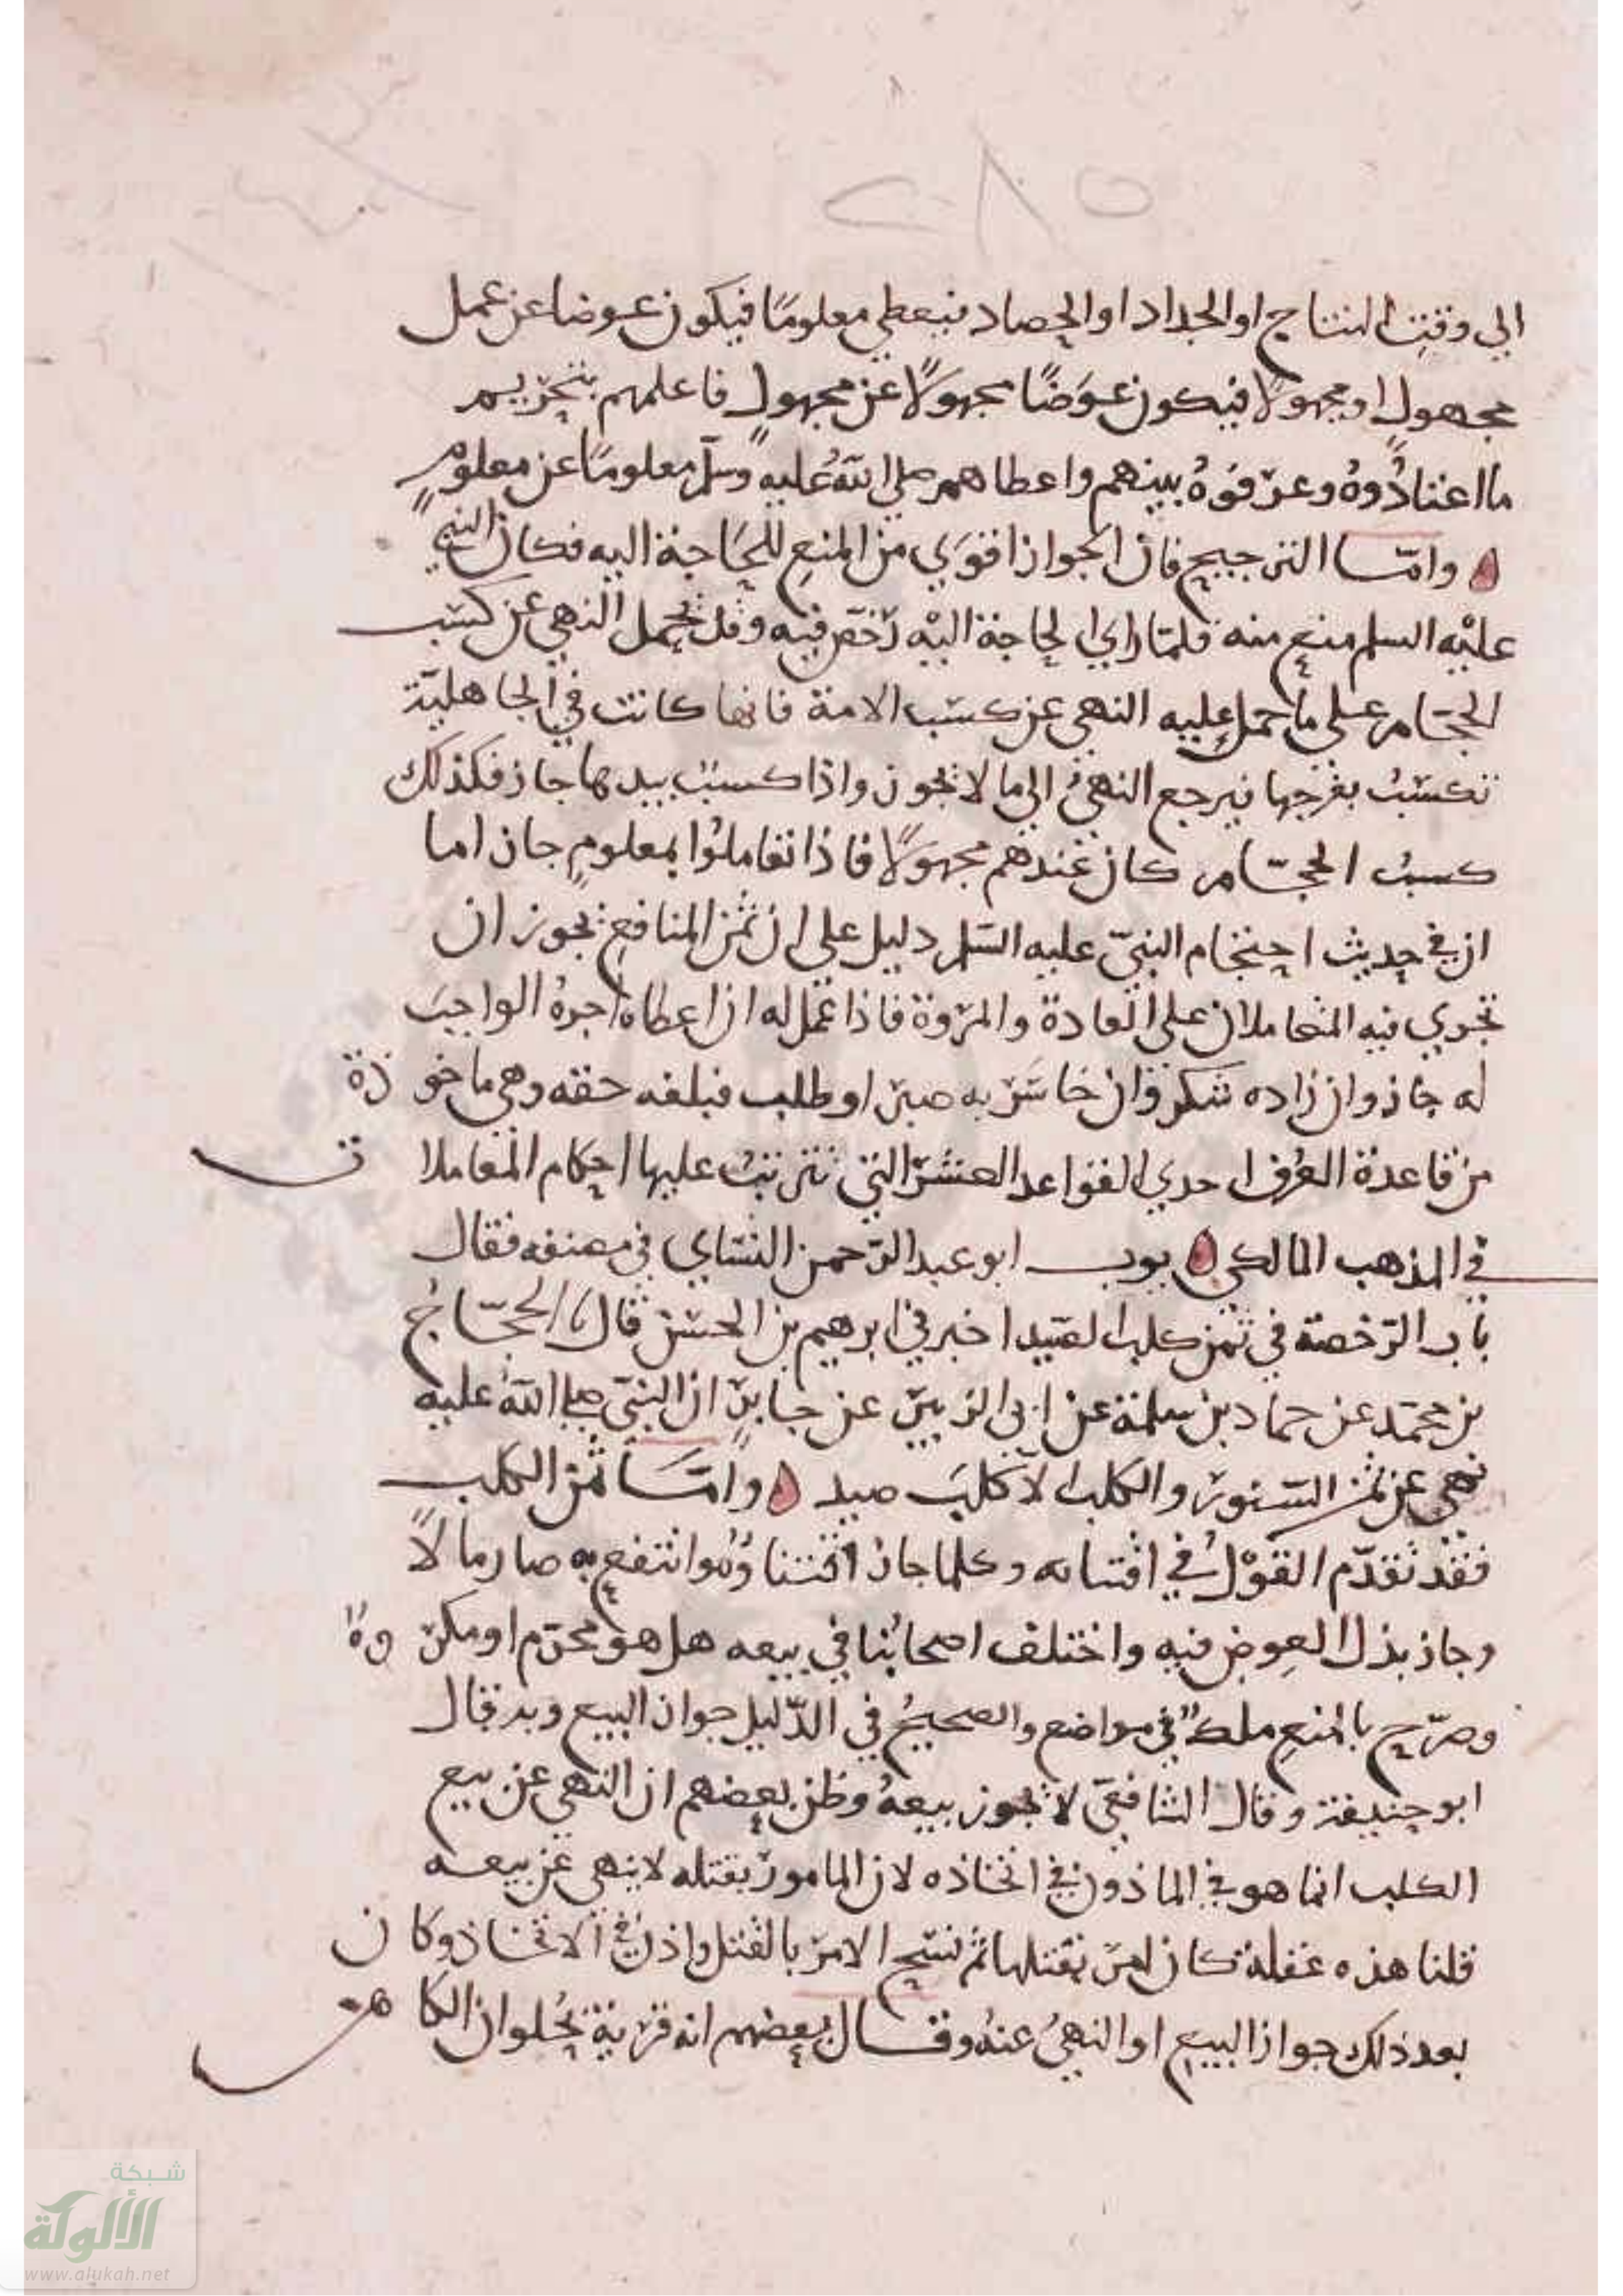 ٢٨٥
الي وقت النتاج او الجداد او الحصاد فيعطي معلومًا فيكون عوضا عن عمل
مجهول او مجهولًا فيكون عوَضًا مجهولًا عن مجهولٍ فاعلمهم بتحريم
ما اعتادُوهُ وعرّفوهُ بينهم واعطاهم صلى اللهُ عليه وسلّم معلومًا عن معلومٍ
وامّا الترجيح فان الجواز اقوي من المنع للحاجة اليه فكان النبي
عليْه السلم منع منه فلمّا راي الحاجة اليْه رخّص فيه وقد يحمل النهي عن كسب
الحجّام علي ما حمل عليه النهي عن كسب الامة فانها كانت في الجاهليّة
تكسبُ بفرجها فيرجع النهيُ الي ما لا يجوز واذا كسبت بيدها جاز فكذلك
كسبُ الحجّام كان عندهم مجهولًا فاذا تعاملوا بمعلومٍ جاز اما
ان في حديث احتجام النبيّ عليه السّلم دليل علي ان ثمن المنافع يجوز ان
تجري فيه المتعاملان علي العادة والمروة فاذا عمل له ان اعطاه اجرهُ الواجب
له جاز وان زاده شكر وان خاسَر به صبر او طلب فبلغه حقه وهي ماخوذة
من قاعدة العُرف احدي القواعد العشر التي تترتبُ عليها احكام المعاملات
في المذهب المالكي بوب ابو عبد الرّحمن النسّاي في مصنفه فقال
باب الرّخصة في ثمن كلب الصّيد اخبرني ابرهيم بن الحسن قال نا الحجّاجُ
بن محمّد عن حماد بن سلمة عن ابي الزبير عن جابرٍ ان النبيّ صلى اللهُ عليه
نهي عن ثمن السّنور والكلب الا كلبَ صيد وامّا ثمن الكلب
فقد تقدّم القوْلُ في اقتنايه وكلما جاز اقتناوُهُ وانتفع به صار مالًا
وجاز بذل العِوض فيه واختلف اصحابُنا في بيعه هل هو محرّم او مكروهٌ
وصرّح بالمنع ملكٌ في مواضع والصحيحُ في الدّليل جواز البيع وبه قال
ابو حنيفة وقال الشافعيّ لا يجوز بيعهُ وظن بعضهم ان النهي عن بيع
الكلب انما هو في الماذون في اتخاذه لان المامور بقتله لا ينهي عن بيعه
قلنا هذه غفلة كان امر بقتلها ثم نسخ الامر بالقتل واذن في الاتخاذ وكان
بعد ذلك جواز البيع او النهيُ عنهُ وقال بعضهم انه قرية بحُلوان الكاهن
شبكة
الألوكة
www.alukah.net